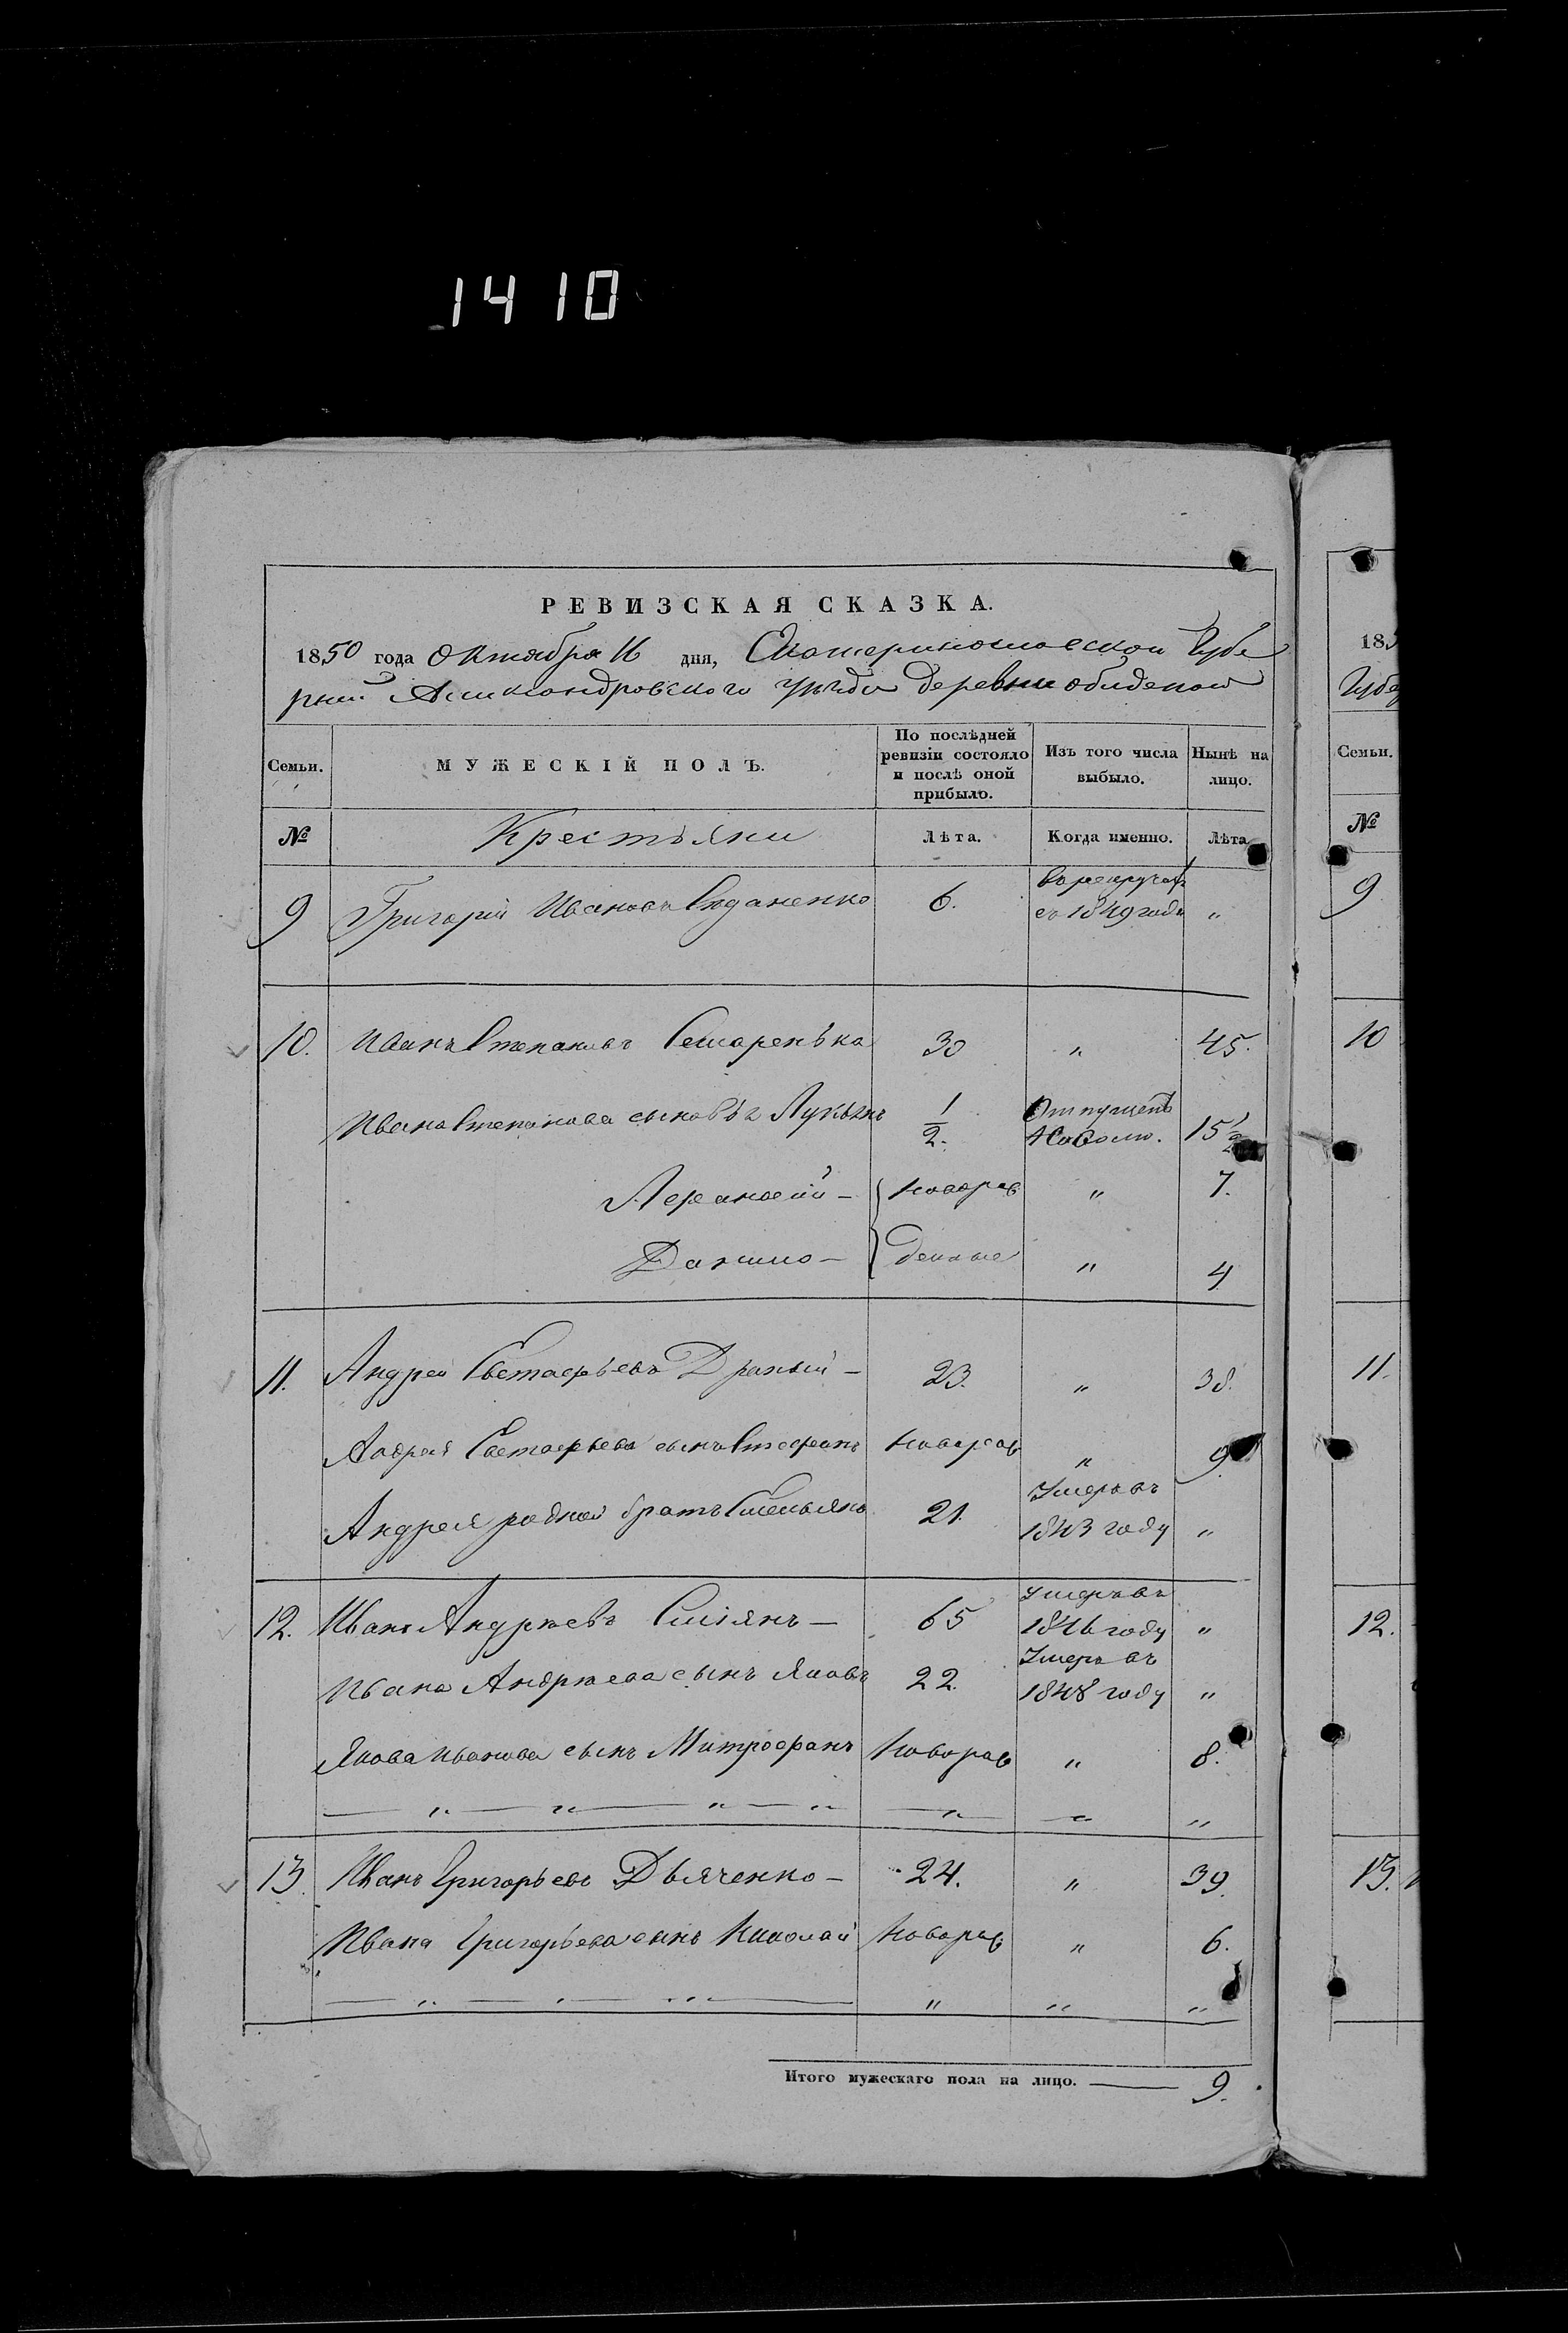 1410
РЕВИЗСКАЯ СКАЗКА.
1850 года Октября 16 дня, Екатеринославской Губе
рнии Александровского уезда деревни
Семьи.
МУЖЕСКІЙ ПОЛЪ.
По послѣдней ревизіи состояло и послѣ оной прибыло.
Изъ того числа выбыло.
Нынѣ на лицо.
№ Крестьяни Лѣта. Когда именно. Лѣта.
9 Григорій Ивановъ 6. въ рекрутахъ
съ 1849 года "
10. Иванъ Степановъ 30 " 45.
Ивана Степанова сыновья Лукьянъ 1/2. Отпущенъ
На волю. 15 1/2
{ новорож " 7.
Данило — { денные " 4
11. Андрей Евстафьевъ Драный — 23. " 38.
Андрея Евстафьева сынъ Стефанъ новорож " 9.
Андрея родной братъ Емельянъ 21. Умеръ въ
1843 году "
12. Иванъ Андреевъ — 65 Умеръ въ
1846 году "
Ивана Андреева сынъ Яковъ 22. Умеръ въ
1848 году "
Якова Иванова сынъ Митрофанъ Новорож " 8.
— " — " — " — " — " — " "
13. Иванъ Григорьевъ Дьяченко — 24. " 39.
Ивана Григорьева сынъ Николай Новорож " 6.
— " — " — " — " " "
Итого мужескаго пола на лицо. — 9.
185
Губер
Семьи.
№
9
10
11.
12.
13.